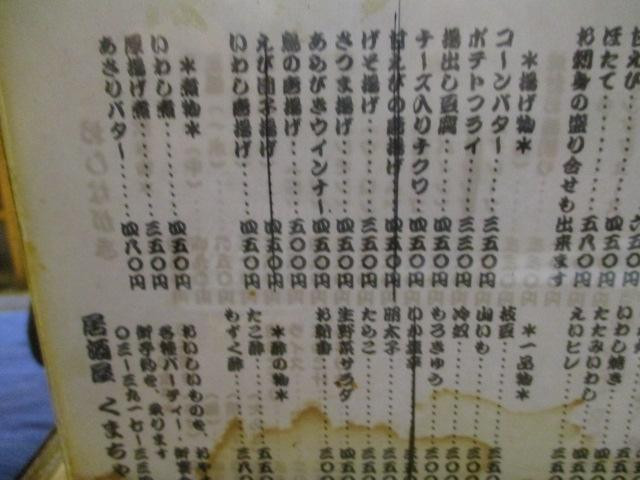 甘えび
ほたて………五八〇円
お刺身の盛り合せも出来ます
＊揚げ物＊
コーンバター………三五〇円
ポテトフライ………三三〇円
揚出し豆腐………四五〇円
チーズ入りチクワ……四五〇円
甘えびの唐揚げ……四五〇円
げそ揚げ………三五〇円
さつま揚げ………四五〇円
あらびきウインナー……四五〇円
鳥の唐揚げ………五〇〇円
えび団子揚げ……四五〇円
いわし唐揚げ……四五〇円
＊煮物＊
いわし煮………四五〇円
厚揚げ煮………三五〇円
あさりバター……四八〇円
いわし焼き
たたみいわし
えいヒレ
＊一品物＊
枝豆
山いも
冷奴
もろきゅう
明太子
たらこ
生野菜サラダ
お新香
＊酢の物＊
たこ酢
もずく酢
おいしいものを、
各種パーティー、
御予約を、承ります
居酒屋 くまちゃ